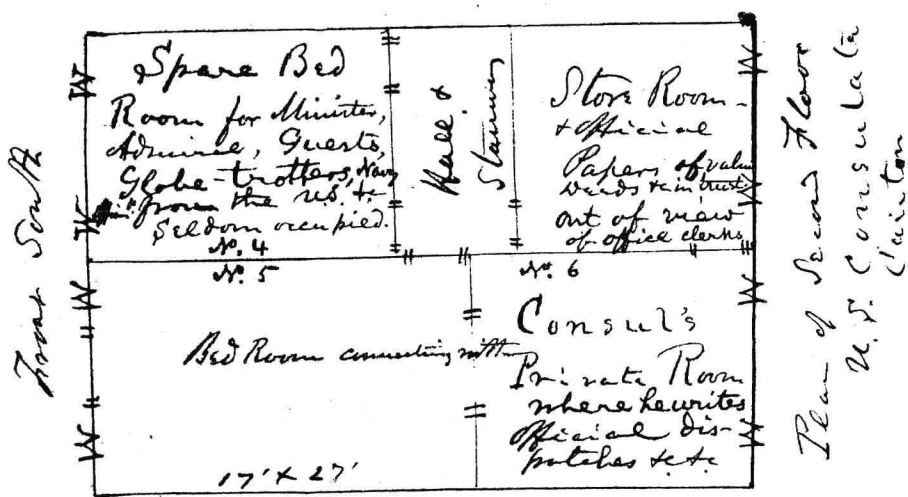 Spare Bed
Room for Minister,
Admiral, Guests,
Globe-trotters, Navy
from the U.S. &c
Seldom occupied.
No. 4
Hall &
Stairway
Store Room
& official
Papers of value
deeds & in trust
out of view
of office clerks
No. 5
Bed Room connecting with
17' x 27'
No. 6
Consul's
Private Room
where he writes
official dis-
patches &c &c
Front South
Plan of Second Floor
U.S. Consulate
Canton
W
W
W
W
W
W
W
W